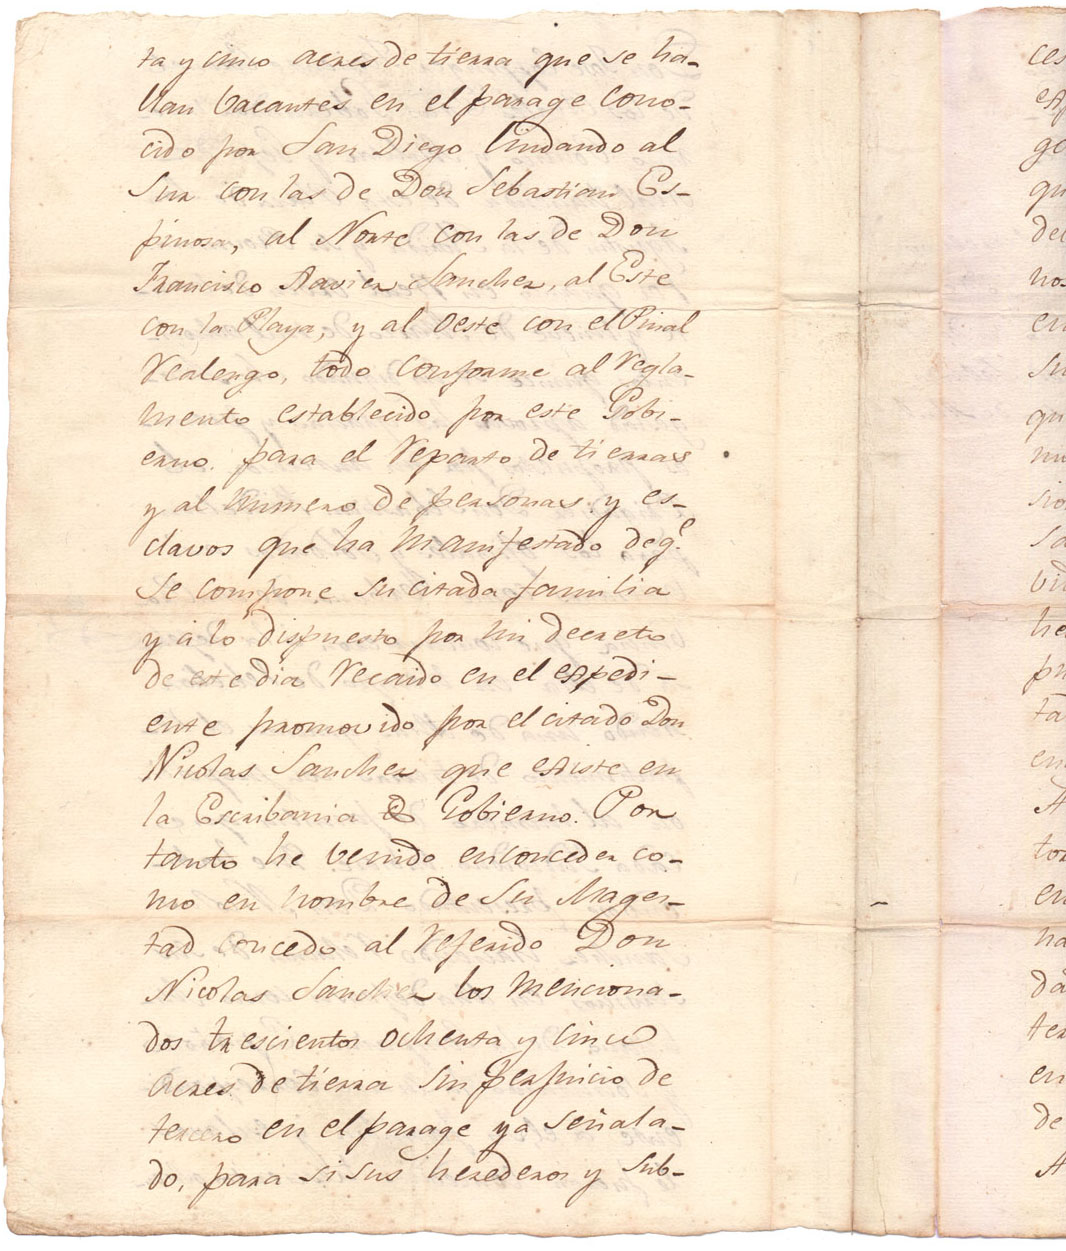 ta y cinco acres de tierra que se ha-
llan bacantes en el parage cono-
cido por San Diego lindando al
Sur con las de Don Sebastian Es-
pinosa, al Norte con las de Don
Francisco Xavier Sanchez, al Este
con la Playa, y al Oeste con el Pinal
Realengo, todo conforme al Regla-
mento establecido por este Gobi-
erno para el Reparto de tierras
y al numero de personas y es-
clavos que ha manifestado de q.e
se compone su citada familia
y á lo dispuesto por mi decreto
de este dia Recaido en el expedi-
ente promovido por el citado Don
Nicolas Sanchez que existe en
la Escribania de Gobierno. Por
tanto he venido en conceder co-
mo en nombre de Su Mages-
tad concedo al Referido Don
Nicolas Sanchez los menciona-
dos trescientos ochenta y cinco
acres de tierra sin perjuicio de
tercero en el parage ya señala-
do, para si sus herederos y sub-